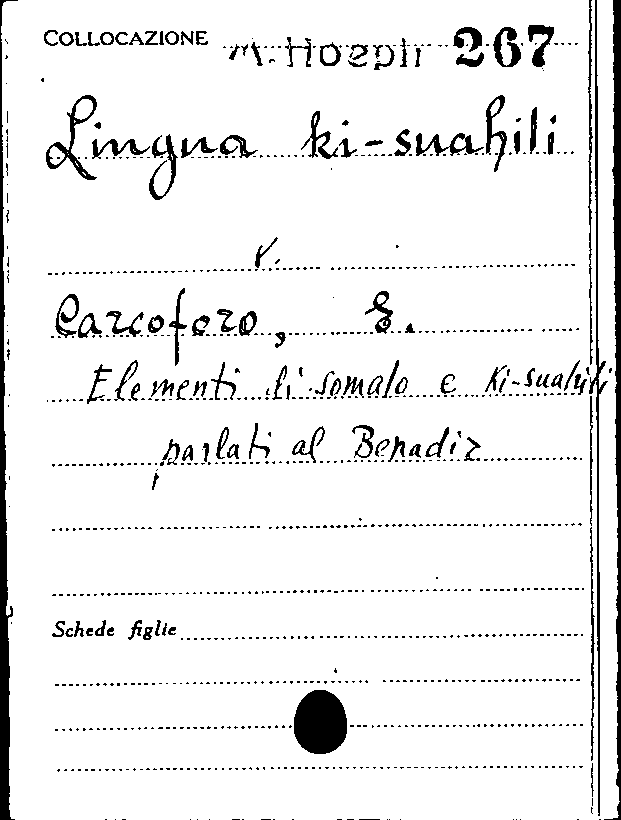 COLLOCAZIONE M. Hoepli 267
Lingua ki-suahili
v.
Carcoforo, E.
Elementi di somalo e Ki-suahili
parlati al Benadir
Schede figlie